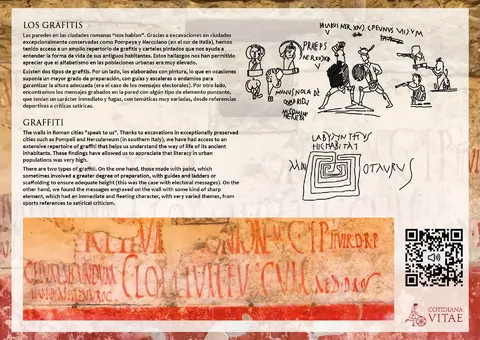 LOS GRAFITIS
Las paredes en las ciudades romanas "nos hablan". Gracias a excavaciones en ciudades
excepcionalmente conservadas como Pompeya y Herculano (en el sur de Italia), hemos
tenido acceso a un amplio repertorio de grafitis y carteles pintados que nos ayuda a
entender la forma de vida de sus antiguos habitantes. Estos hallazgos nos han permitido
apreciar que el alfabetismo en las poblaciones urbanas era muy elevado.
Existen dos tipos de grafitis. Por un lado, los elaborados con pintura, lo que en ocasiones
suponía un mayor grado de preparación, con guías y escaleras o andamios para
garantizar la altura adecuada (era el caso de los mensajes electorales). Por otro lado,
encontramos los mensajes grabados en la pared con algún tipo de elemento punzante,
que tenían un carácter inmediato y fugaz, con temáticas muy variadas, desde referencias
deportivas a críticas satíricas.
GRAFFITI
The walls in Roman cities "speak to us". Thanks to excavations in exceptionally preserved
cities such as Pompeii and Herculaneum (in southern Italy), we have had access to an
extensive repertoire of graffiti that helps us understand the way of life of its ancient
inhabitants. These findings have allowed us to appreciate that literacy in urban
populations was very high.
There are two types of graffiti. On the one hand, those made with paint, which
sometimes involved a greater degree of preparation, with guides and ladders or
scaffolding to ensure adequate height (this was the case with electoral messages). On the
other hand, we found the messages engraved on the wall with some kind of sharp
element, which had an immediate and fleeting character, with very varied themes, from
sports references to satirical criticism.
PRINCEPS
NOLA DE
LABYRINTHUS
HIC HABITAT
MINOTAURUS
COTIDIANA
VITAE